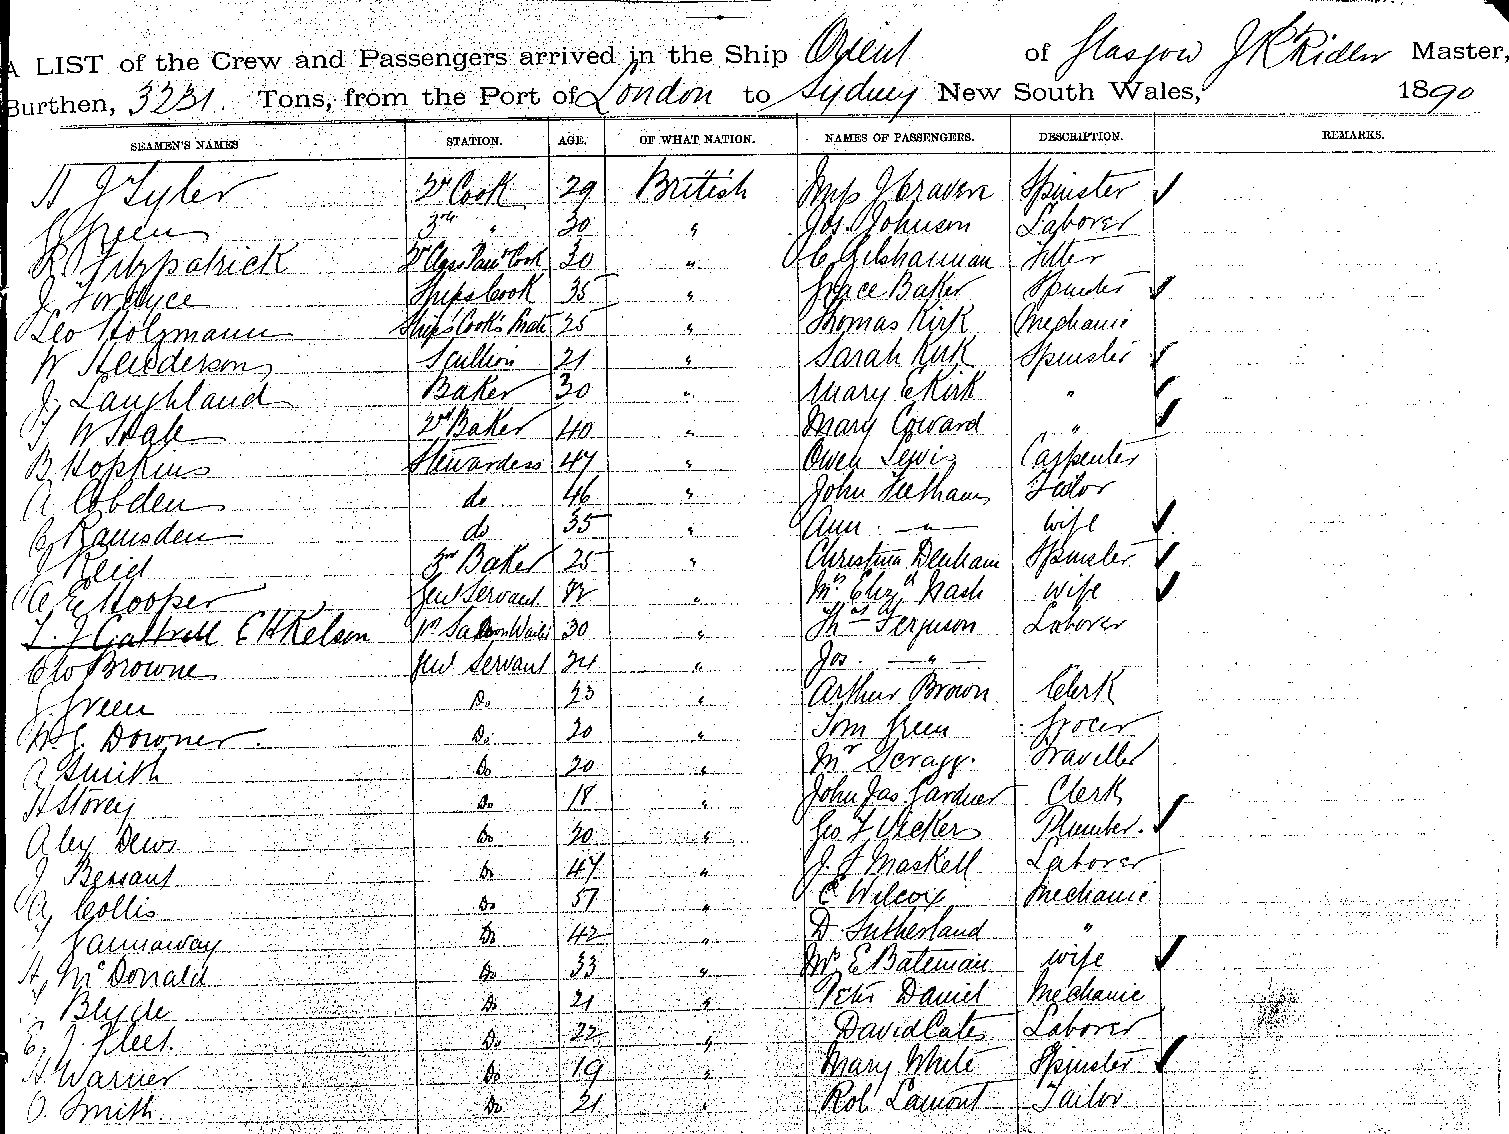 A LIST of the Crew and Passengers arrived in the Ship Orient of Glasgow J F Riden Master,
Burthen, 3231. Tons, from the Port of London to Sydney New South Wales, 1890
SEAMEN'S NAMES STATION. AGE. OF WHAT NATION. NAMES OF PASSENGERS. DESCRIPTION. REMARKS.
H J Tyler 2nd Cook 29 British Miss J Craven Spinster ✓
J Green 3rd " 30 " Jos. Johnson Laborer
R Fitzpatrick 2nd Class Cook 30 " C Gilshannan Fitter
J Fordyce Ships Cook 35 " Grace Baker Spinster ✓
Leo Holzmann Ship's Cook's Mate 25 " Thomas Kirk Mechanic
W Henderson Scullion 21 " Sarah Kirk Spinster ✓
J Laughland Baker 30 " Mary E Kirk " ✓
T W Hale 2nd Baker 40 " Mary Coward " ✓
B Hopkins Stewardess 47 " Owen Lewis Carpenter
A Cobden do 46 " John Feetham Tailor
C Ramsden do 35 " Ann — " — wife ✓
J Reid 3rd Baker 25 " Christina Denham Spinster ✓
C E Hooper Genl Servant " Mrs Elizth Nash wife ✓
T. J Gattrell E H Kelson Saloon Waiter 30 " Thos Ferguson Laborer
C W Browne Genl Servant 24 " Jos. — " —
J Green Do 23 " Arthur Brown Clerk
W G Downer. Do 20 " Tom Green Grocer
A Smith Do 20 " Mr Scragg. Traveller
H Storey Do 18 " John Jas Gardner Clerk
Alex Dews Do 20 " Geo F Vickers Plumber. ✓
J Bessant Do 47 " J. F Maskell Laborer
A Collis Do 57 " C Wilcox Mechanic
T Jannaway Do 42 " D. Sutherland "
H McDonald Do 33 " Mrs E Bateman wife ✓
Blyde Do 21 " Peter Daniel Mechanic
E. J Fleet. Do 22 " David Cates Laborer
H Warner Do 19 " Mary White Spinster ✓
O. Smith. Do 21 " Robt Lamont Tailor